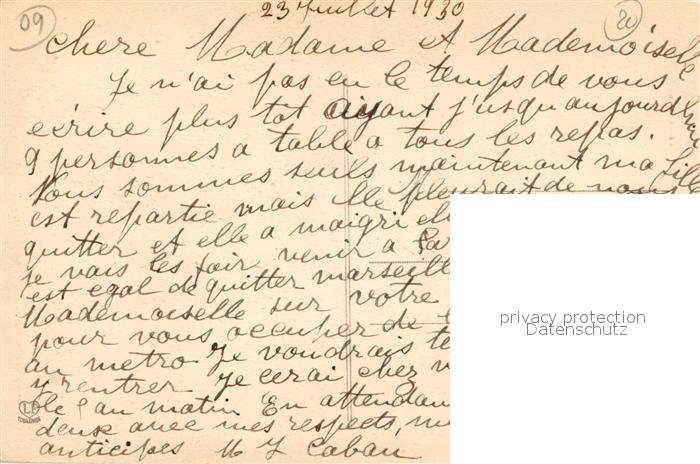 23 Juillet 1930
09
20
Chere Madame et Mademoiselle
Je n'ai pas eu le temps de vous
ecrire plus tot ayant j'usqu aujourd'hui
9 personnes a table a tous les repas.
Nous sommes seuls maintenant ma fille
est repartie mais elle pleurait de nous
quitter et elle a maigri
je vais les fair venir a Par
est egal de quitter marseille
Mademoiselle sur votre
pour vous occuper de
au metro Je voudrais
y rentrer Je cerai chez v
au matin En attendan
deux avec mes respects, m
anticipes M Y Caban
privacy protection
Datenschutz